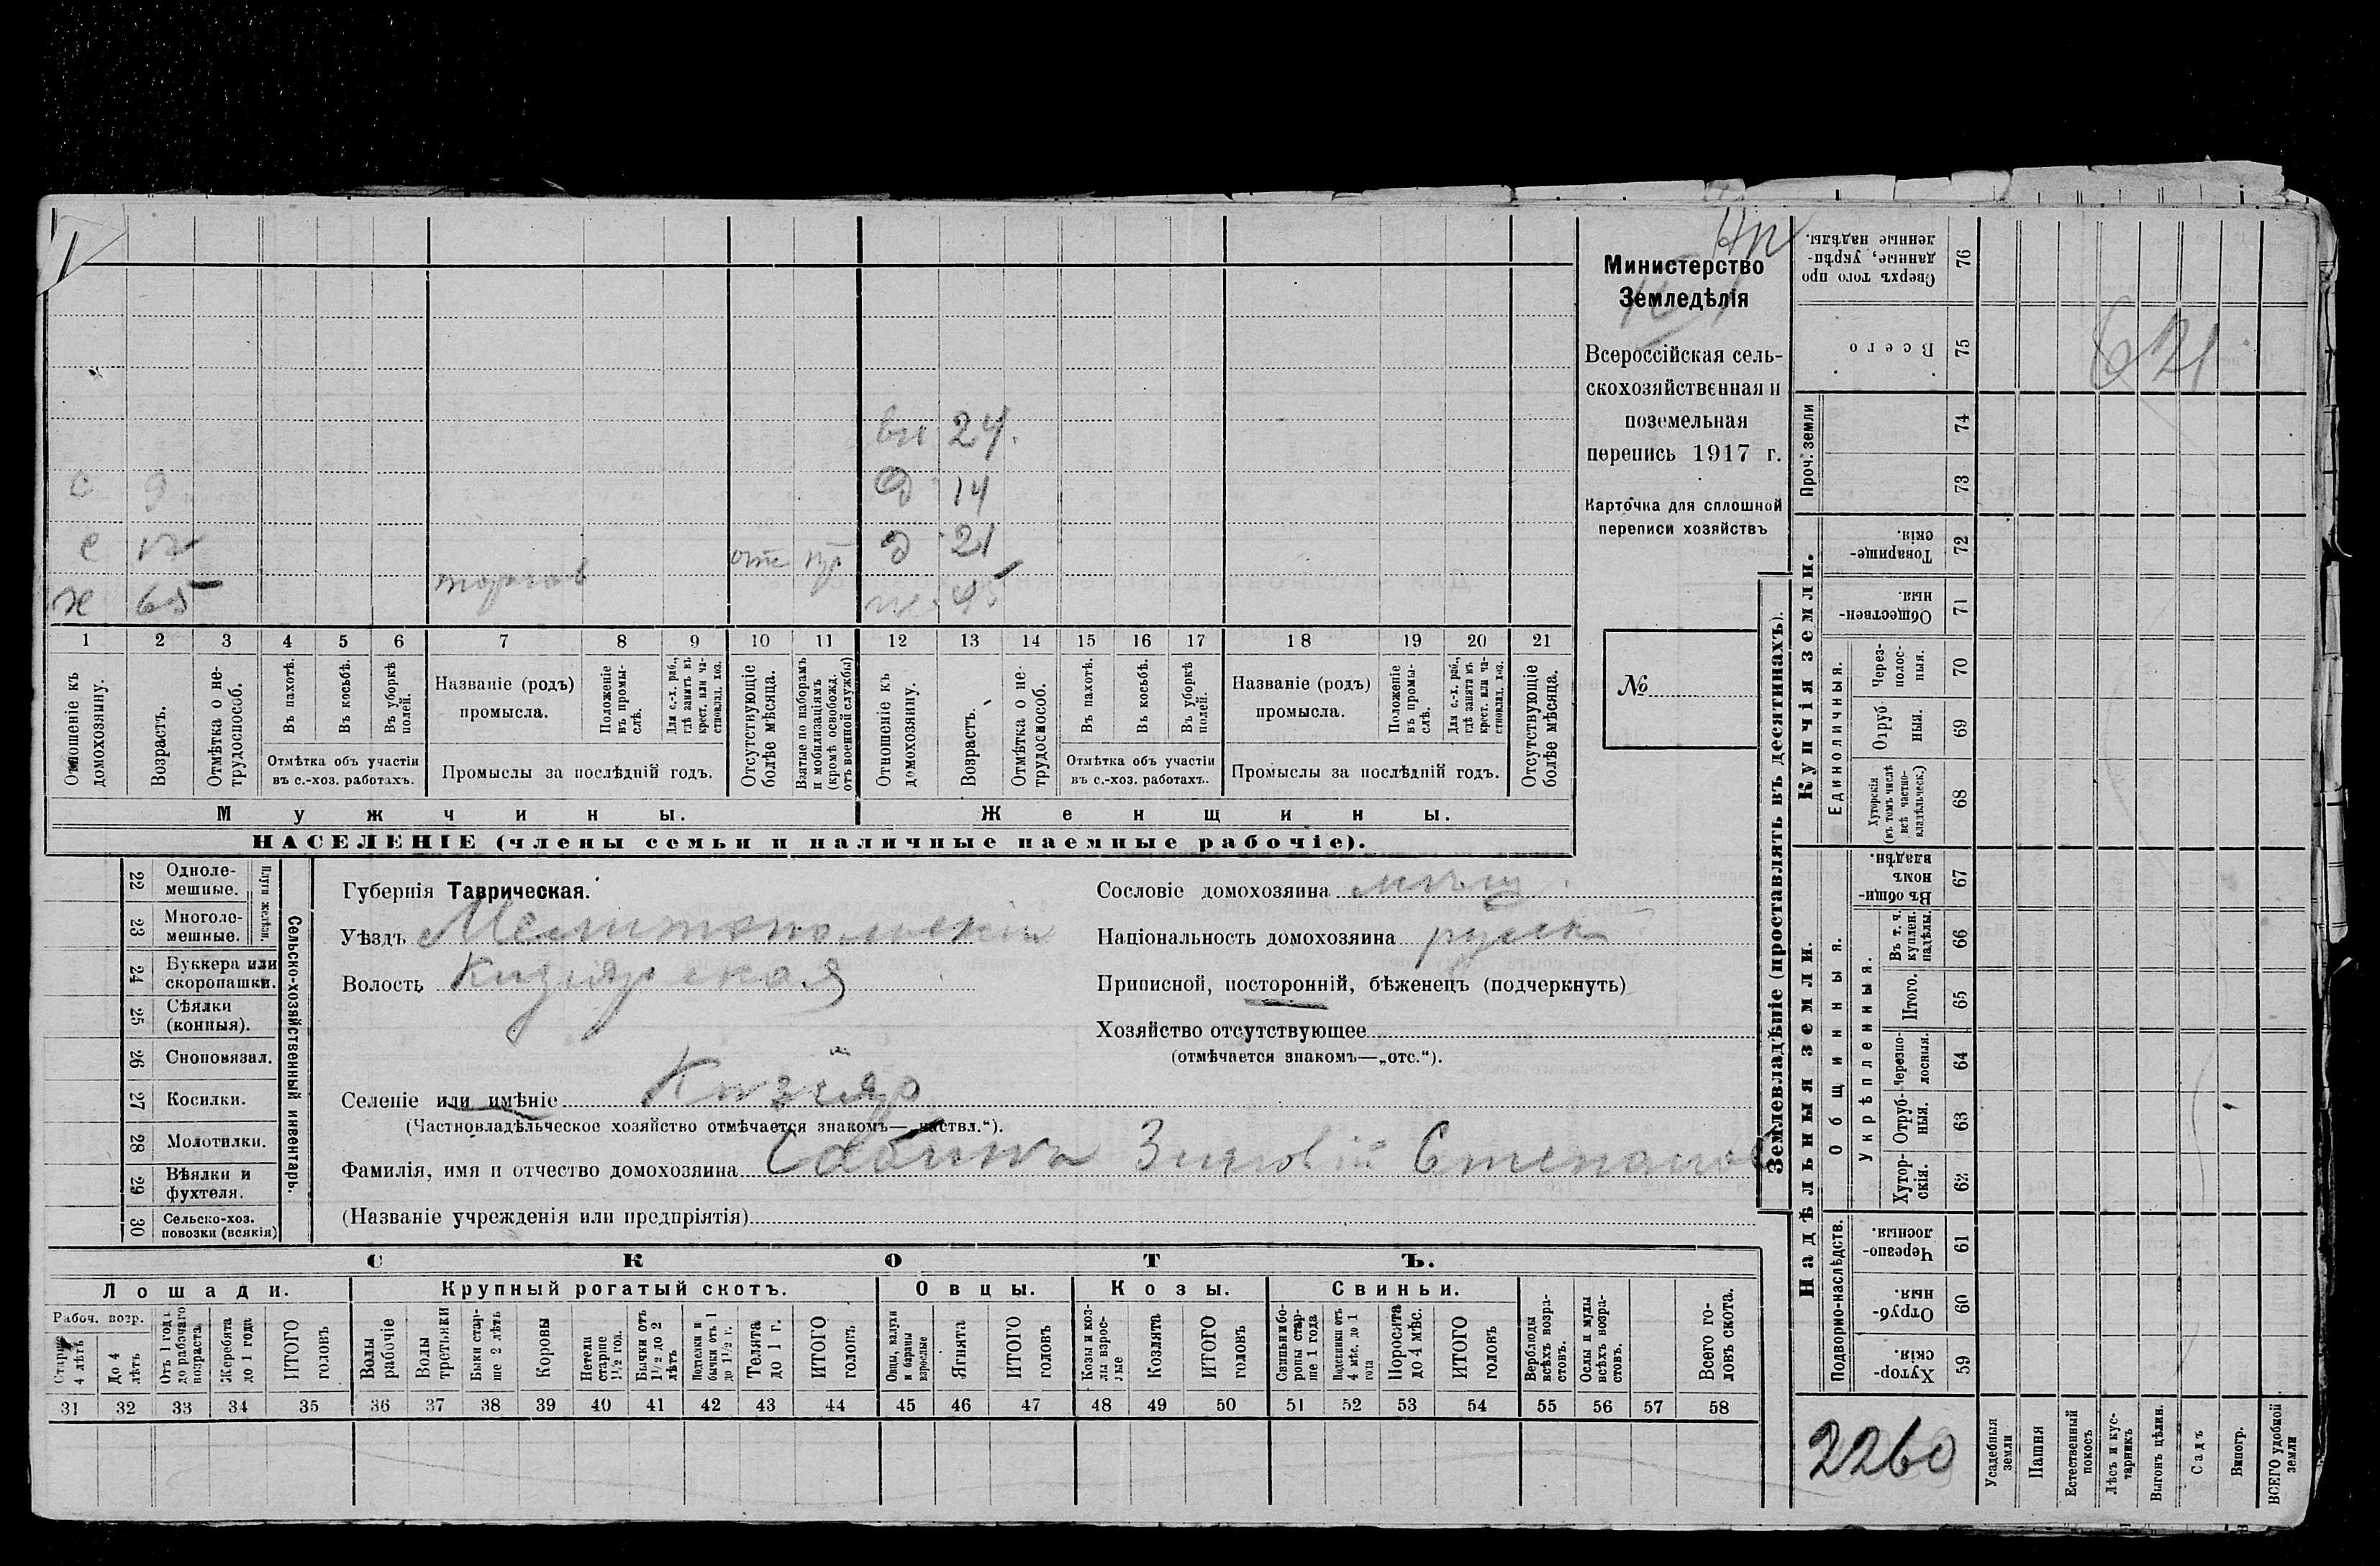 24.
с 9 д 14
с д 21
х 65 торгов отс ж. 45
1 2 3 4 5 6 7 8 9 10 11 12 13 14 15 16 17 18 19 20 21
Отношеніе къ домохозяину.
Возрастъ.
Отмѣтка о не-
трудоспособ.
Въ пахотѣ.
Въ косьбѣ.
Въ уборкѣ полей.
Отмѣтка объ участіи
въ с.-хоз. работахъ.
Названіе (родъ)
промысла.
Положеніе въ промы-
слѣ.
Для с.-х. раб., гдѣ занятъ въ крест. или ча-
стновлад. хоз.
Промыслы за послѣдній годъ.
Отсутствующіе болѣе мѣсяца.
Взятые по наборамъ и мобилизаціямъ (кромѣ освобожд. отъ военной службы)
Отношеніе къ домохозяину.
Возрастъ.
Отмѣтка о не-
трудоспособ.
Въ пахотѣ.
Въ косьбѣ.
Въ уборкѣ полей.
Отмѣтка объ участіи
въ с.-хоз. работахъ.
Названіе (родъ)
промысла.
Положеніе въ промы-
слѣ.
Для с.-х. раб., гдѣ занята въ крест. или ча-
стновлад. хоз.
Промыслы за послѣдній годъ.
Отсутствующіе болѣе мѣсяца.
Мужчины. Женщины.
НАСЕЛЕНІЕ (члены семьи и наличные наемные рабочіе).
Министерство
Земледѣлія
Всероссійская сель-
скохозяйственная и
поземельная
перепись 1917 г.
Карточка для сплошной
переписи хозяйствъ
№
22 Одноле-
мешные.
23 Многоле-
мешные.
Плуги желѣзн.
24 Буккера или
скоропашки.
25 Сѣялки
(конныя).
26 Сноповязал.
27 Косилки.
28 Молотилки.
29 Вѣялки и
фухтеля.
30 Сельско-хоз.
повозки (всякія)
Сельско-хозяйственный инвентарь.
Губернія Таврическая.
Уѣздъ Мелитопольскій
Волость Кизіярская
Селеніе или имѣніе Кизіяр
(Частновладѣльческое хозяйство отмѣчается знакомъ—„частвл.“).
Фамилія, имя и отчество домохозяина Сабина Зиновій Степанов
(Названіе учрежденія или предпріятія)
Сословіе домохозяина мѣщ.
Національность домохозяина русск
Приписной, посторонній, бѣженецъ (подчеркнуть)
Хозяйство отсутствующее
(отмѣчается знакомъ—„отс.“).
СКОТЪ.
Лошади. Крупный рогатый скотъ. Овцы. Козы. Свиньи.
Рабоч. возр.
Старше 4 лѣтъ
До 4 лѣтъ
Отъ 1 года до рабочаго возраста
Жеребята до 1 года
ИТОГО головъ
Волы рабочіе
Волы третьяки
Быки стар-
ше 2 лѣтъ
Коровы
Нетели старше 1½ год.
Бычки отъ 1½ до 2 лѣтъ
Подтелки и бычки отъ 1 до 1½ г.
Телята до 1 г.
ИТОГО головъ
Овцы, валухи и бараны взрослые
Ягнята
ИТОГО головъ
Козы и коз-
лы взрос-
лые
Козлята
ИТОГО головъ
Свиньи и бо-
ровы стар-
ше 1 года
Подсвинки отъ 4 мѣс. до 1 года
Поросята до 4 мѣс.
ИТОГО головъ
Верблюды всѣхъ возра-
стовъ.
Ослы и мулы всѣхъ возра-
стовъ.
Всего го-
ловъ скота.
31 32 33 34 35 36 37 38 39 40 41 42 43 44 45 46 47 48 49 50 51 52 53 54 55 56 57 58
Землевладѣніе (проставлять въ десятинахъ).
Сверхъ того про
данные, укрѣп-
ленные надѣлы. 76
Всего 75
Проч. земли 74
73
Купчія земли.
Товарище-
скія. 72
Обществен-
ныя. 71
Единоличныя.
Через-
полос-
ныя. 70
Отруб-
ныя. 69
Хуторскія (въ томъ числѣ всѣ частно-
владѣльческ.) 68
Надѣльныя земли.
Общинныя.
Въ общи-
номъ
владѣн. 67
Укрѣпленныя.
Въ т. ч. куплен. надѣлы. 66
Итого. 65
Черезпо-
лосныя. 64
Отруб-
ныя. 63
Хутор-
скія. 62
Подворно-наслѣдств.
Черезпо-
лосныя 61
Отруб-
ныя. 60
Хутор-
скія. 59
621
2260
Усадебныя земли
Пашня
Естественный покосъ
Лѣсъ и кус-
тарникъ
Выгонъ цѣлин.
Садъ
Виногр.
ВСЕГО удобной земли